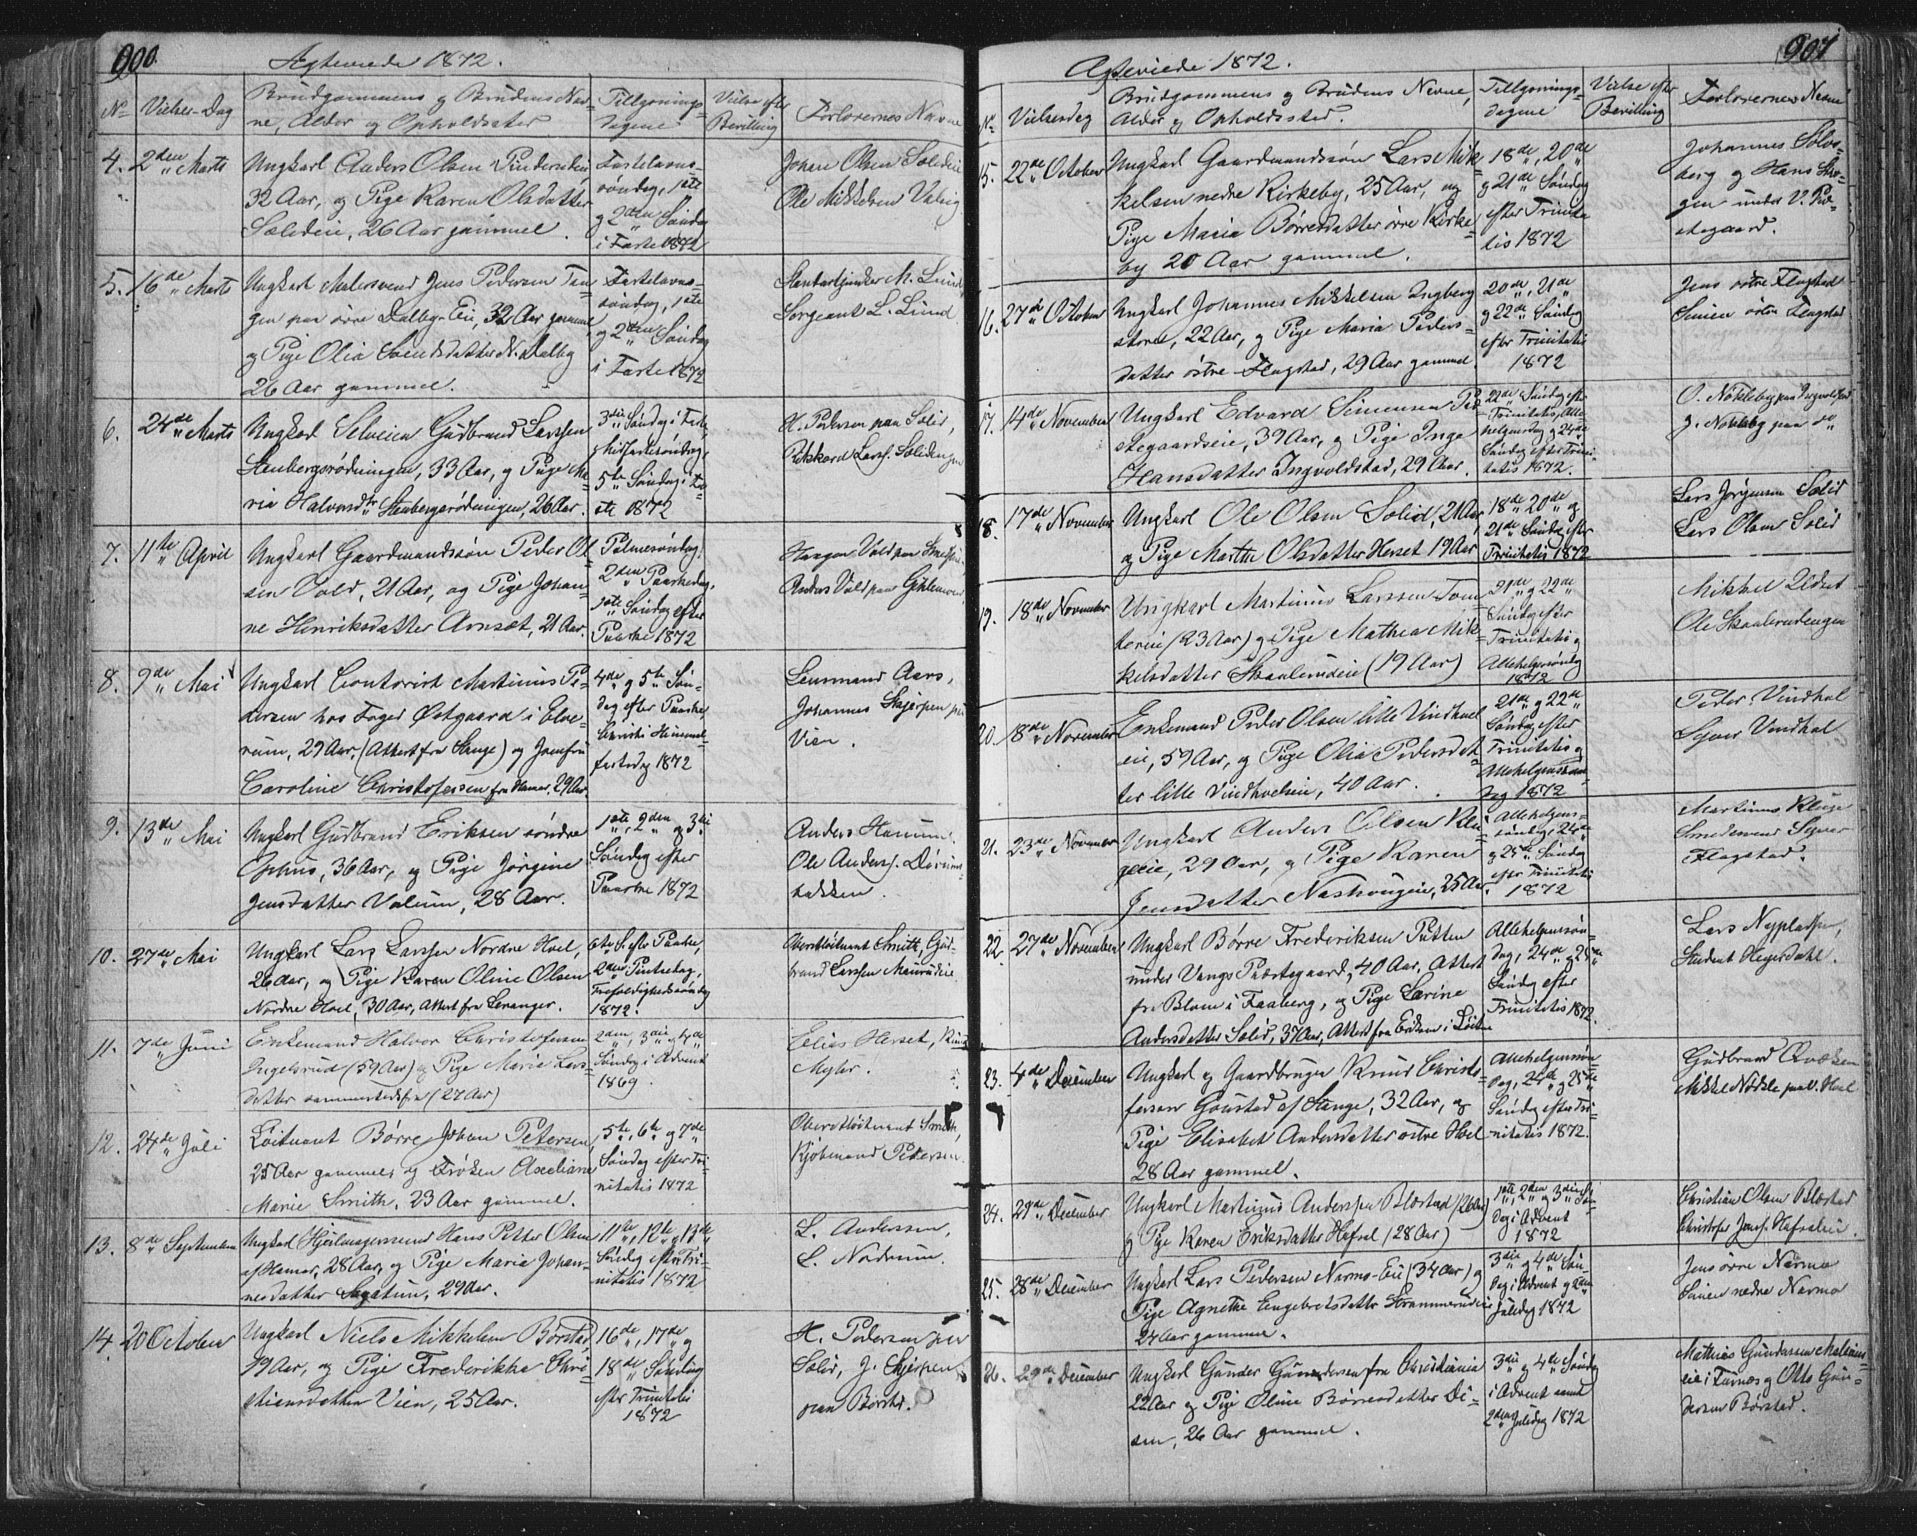 900.
Ægteviede 1872.
No Vielses-Dag Brudgommens og Brudens Nav-
ne, Alder og Opholdssted
Tillysnings-
dagene
Vielse efter
Bevilling
Forlovernes Navne
4. 2den Marts
Ungkarl Anders Olsen
32 Aar, og Pige Karen Olsdatter
Solideie, 26 Aar gammel.
Fastelavns-
søndag, 1ste
og 2den Søndag
i Faste 1872
Johan Olsen Solideie
Ole Mikkelsen
5. 16de Marts
Ungkarl Malersvend Jens Pedersen Tan-
gen paa øvre Dalby-Eie, 32 Aar gammel
og Pige Olia Svendsdatter N. Dalby
26 Aar gammel.
Fastelavns-
søndag, 1ste
og 2den Søndag
i Faste 1872
M. Lund
Sergeant L. Lund
6. 24de Marts
Ungkarl Selveier Gudbrand Larssen
Stenbergsrødningen, 33 Aar, og Pige Ma-
ria Halvorsdtr Stenbergsrødningen, 26 Aar.
3die Søndag i Faste,
Midfastesøndag,
5te Søndag i Fa-
ste 1872
H. Pedersen paa Solid,
Rikkard Larss. Solidengen
7. 11te April
Ungkarl Gaardmandssøn Peder Ol-
sen Vold, 21 Aar, og Pige Johan-
ne Henriksdatter Arnset, 21 Aar.
Palmesøndag,
2den Paaskedag,
1ste Søndag efter
Paaske 1872
Haagen Vold paa
Anders Vold paa
8. 9de Mai
Ungkarl Contorist Martinus Pe-
dersen hos Foged Østgaard i Elve-
rum, 29 Aar, (Attest fra Stange) og Jomfru
Caroline Christofersen fra Hamar, 29 Aar.
4de og 5te Søn-
dag efter Paaske,
Christi Himmel-
fartsdag 1872
Lensmand Aars,
Johannes Skjerpen paa
Vien.
9. 13de Mai
Ungkarl Gudbrand Eriksen søndre
Ophus, 36 Aar, og Pige Jørgine
Jensdatter Valum, 28 Aar.
1ste, 2den og 3die
Søndag efter
Paaske 1872
Anders Hanum
Ole Anders.
bakken.
10. 27de Mai
Ungkarl Lars Larssen Nordre Hoel,
26 Aar, og Pige Karen Oline Olsen
Nordre Hoel, 30 Aar, Attest fra Levanger.
6te S. efter Paaske,
2den Pintsedag,
Trefoldighedssøndag
1872.
Oberstløitnant Smith, Gud-
brand Larssen
11. 7de Juni
Enkemand Halvor Christofersen
Ingelsrud (59 Aar) og Pige Marie Lars-
datter sammestedsfra (27 Aar)
2den, 3die og 4de
Søndag i Advent
1869.
Elias Herset,
Myhr.
12. 24de Juli
Løitnant Børre Johan Petersen,
25 Aar gammel, og Frøken Axeliane
Marie Smith, 23 Aar gammel.
5te, 6te og 7de
Søndag efter Tri-
nitatis 1872
Oberstløitnant Smith,
Kjøbmand Petersen.
13. 8de September
Ungkarl Hjulmagersvend Hans Petter Olsen
af Hamar, 28 Aar, og Pige Maria Johan-
nesdatter Sagatun, 29 Aar.
11te, 12te, 13de
Søndag efter Tri-
nitatis 1872
L. Andersen,
L. Nordrum.
14. 20 October
Ungkarl Niels Mikkelsen Børstad,
Aar, og Pige Frederikke Chri-
stiansdatter Vien, 25 Aar.
16de, 17de og
18de Søndag
efter Trinitatis
1872
H. Pedersen paa
Solid, J. Skjerpen
paa Børstad.
901
Ægteviede 1872.
No Vielsesdag
Brudgommens og Brudens Navne,
Alder og Opholdssted.
Tillysnings-
dagene
Vielse efter
Bevilling
Forlovernes Navne
15. 22de October
Ungkarl Gaardmandssøn Lars Mik-
kelsen nedre Kirkeby, 25 Aar, og
Pige Maria Børresdatter øvre Kirke-
by 20 Aar gammel.
18de, 20de
og 21de Søndag
efter Trinita-
tis 1872
Johannes Solv-
berg og Hans Sko-
gen under V. Præ-
stegaard.
16. 27de October
Ungkarl Johannes Mikkelsen Ingberg
store, 22 Aar, og Pige Maria Peders-
datter østre Flagstad, 29 Aar gammel.
20de, 21de
og 22de Søndag
efter Trinitatis
1872
Jens østre Flagstad
Simen østre Flagstad
17. 14de November
Ungkarl Edvard Simensen Præ-
stegaardseie, 39 Aar, og Pige Inge
Hansdatter Ingvoldstad, 29 Aar.
22de Søndag efter
Trinitatis, Alle-
helgensdag og 24de
Søndag efter Trini-
tatis 1872.
O. Nökleby paa Ingvoldstad
J. Nökleby paa do
18. 17de November
Ungkarl Ole Olsen Solid, 21 Aar,
og Pige Marthe Olsdatter Herset 19 Aar
18de 20de og
21de Søndag efter
Trinitatis 1872
Lars Jørgensen Solid
Lars Olsen Solid
19. 18de November
Ungkarl Martinus Larssen Tom-
tereie (23 Aar) og Pige Mathea Mik-
kelsdatter Skaalerudeie (19 Aar)
21de og 22de
Søndag efter
Trinitatis og
Allehelgensøndag
1872
Mikkel
Ole Skaalerudengen
20. 18de November
Enkemand Peder Olsen lille Vindhoel
eie, 59 Aar, og Pige Olia Pedersdat-
ter lille Vindhoelseie, 40 Aar.
21de og 22de
Søndag efter
Trinitatis og
Allehelgenssøn-
dag 1872
Peder Vindhol
Syver Vindhol
21. 23de November
Ungkarl Anders Olsen Klu-
geeie, 29 Aar, og Pige Karen
Jensdatter Nashougeie, 25 Aar.
Allehelgens-
søndag, 24de
og 25de Søndag
efter Trinitatis
1872
Martinus Kluge
Smedsvend Syver
Flagstad.
22. 27de November
Ungkarl Børre Frederiksen Putten
under Vangs Præstegaard, 40 Aar, Attest
fr. Blom i Faaberg, og Pige Karine
Andersdatter Solid, 37 Aar, Attest fra Eriksen i Løiten
Allehelgensøn-
dag, 24de og 25de
Søndag efter
Trinitatis 1872.
Lars Nyplatsen,
Student Heyerdahl.
23. 4de December
Ungkarl og Gaardbruger Knud Christo-
fersen Goustad af Stange, 32 Aar, og
Pige Elisabet Andersdatter østre Hoel
28 Aar gammel.
Allehelgenssøn-
dag, 24de og 25de
Søndag efter Tri-
nitatis 1872.
Gudbrand Qvæken
Mikkel Nökle paa v. Hoel
24. 29de December
Ungkarl Martinus Anderssen Blæstad (26 Aar)
og Pige Karen Eriksdatter Hafsal (28 Aar)
1ste, 2den og 3die Søn-
dag i Advent
1872
Christian Olsen Blæstad
Christofer Hafsaleie.
25. 28de December
Ungkarl Lars Pedersen Narmo-Eie (34 Aar) og
Pige Agnethe Engebretsdatter Strammerudeie
24 Aar gammel.
3die og 4de Søn-
dag i Advent og 2den
Juledag 1872
Jens øvre Narmo
Simen nedre Narmo
26. 29de December
Ungkarl Gunder Gundersen fra Christiania
22 Aar og Pige Oline Børresdatter Di-
sen, 26 Aar gammel.
3die og 4de Søndag
i Advent samt
2den Juledag 1872
Mathias Gundersen
eie i Furnes og Otto Gun-
dersen Børstad.